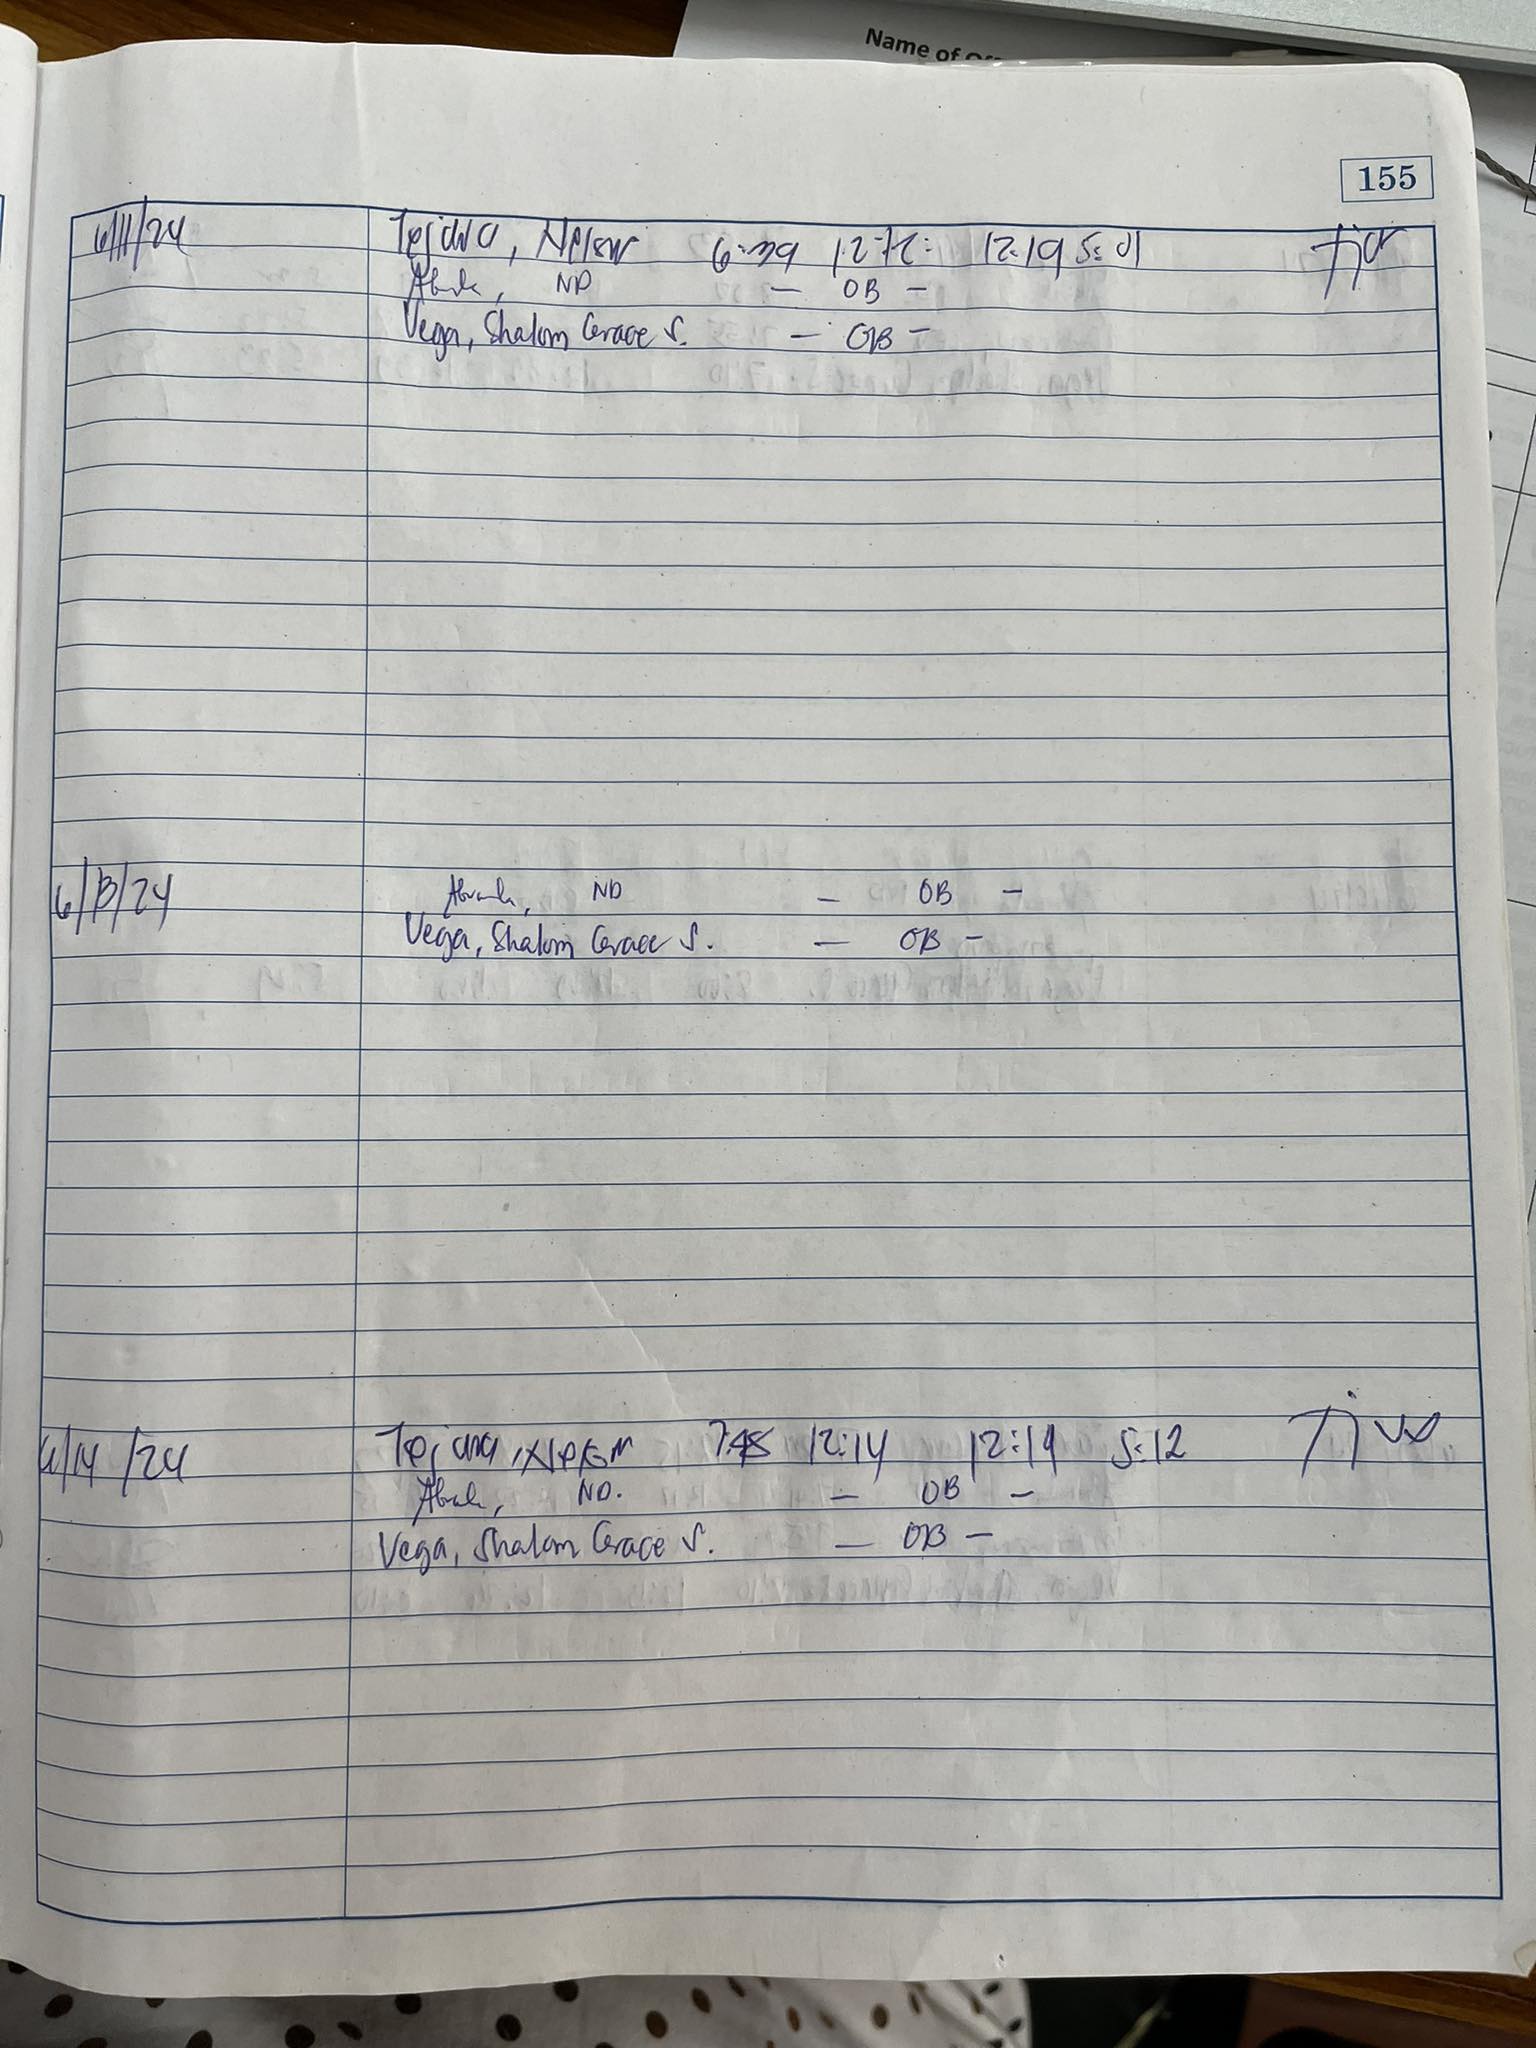 Name of
155
6/11/24 Tejana, Nelson 12:19
ND - OB -
Vega, Shalom Grace S. - OB -
6/13/24 ND - OB -
Vega, Shalom Grace S. - OB -
6/14/24 Tejana, Nelson 7:48 12:14 12:14 5:12
ND. - OB -
Vega, Shalom Grace S. - OB -